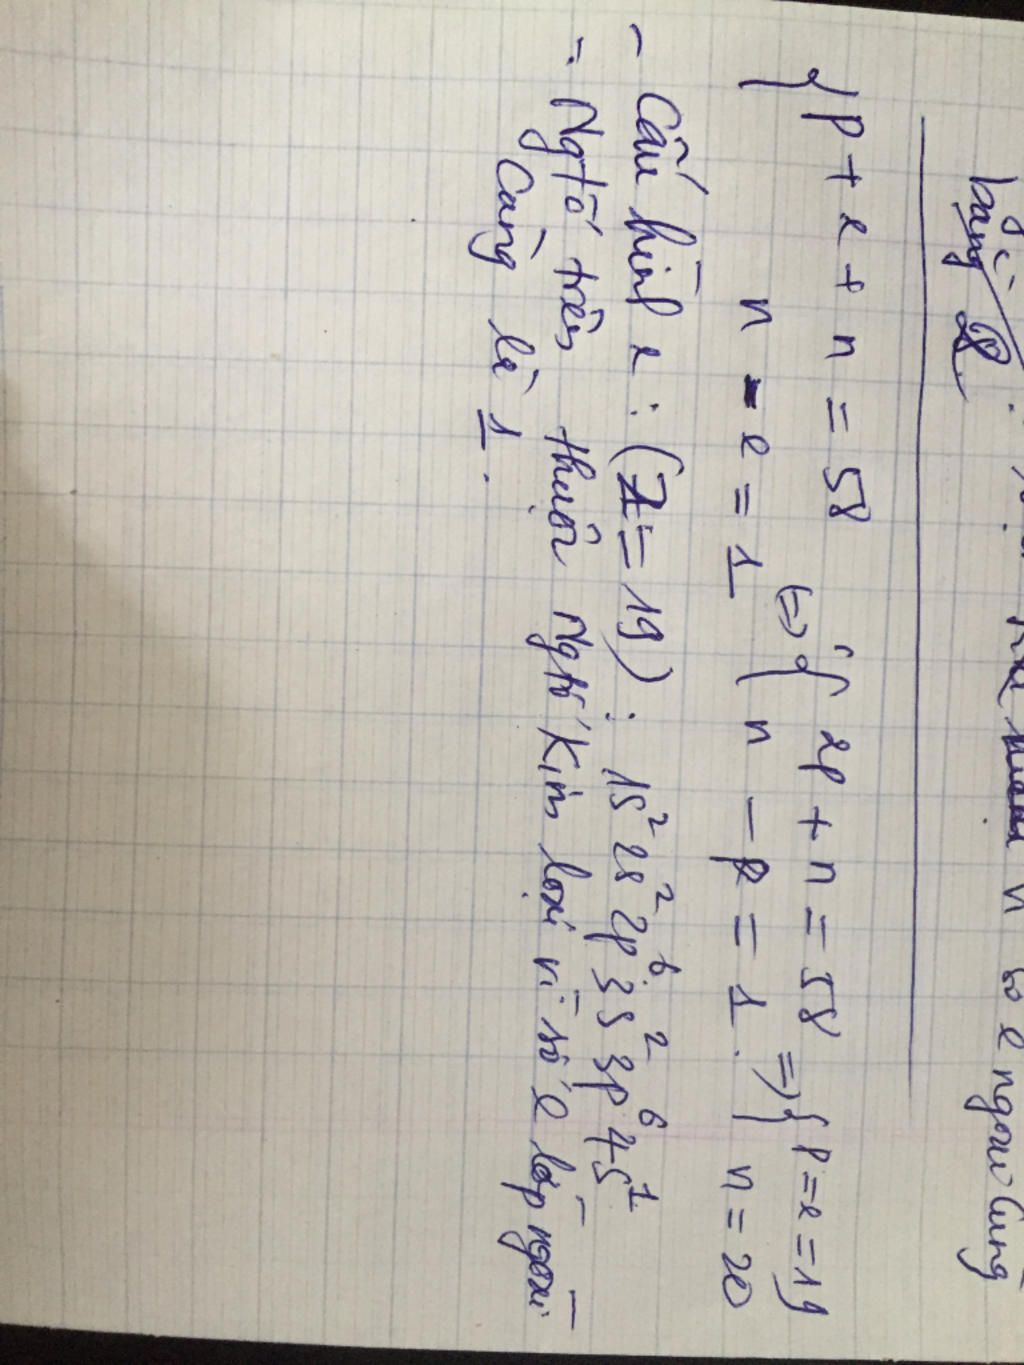 n so e ngoài cùng
bằng 8
{ p + e + n = 58 <=> { 2p + n = 58 => { p = e = 19
n - e = 1 n - p = 1. n = 20
- Cấu hình e : (Z = 19) : 1s² 2s² 2p⁶ 3s² 3p⁶ 4s¹
- Ngtố trên thuộc Ngtố Kim loại vì số e lớp ngoài
cùng là 1.